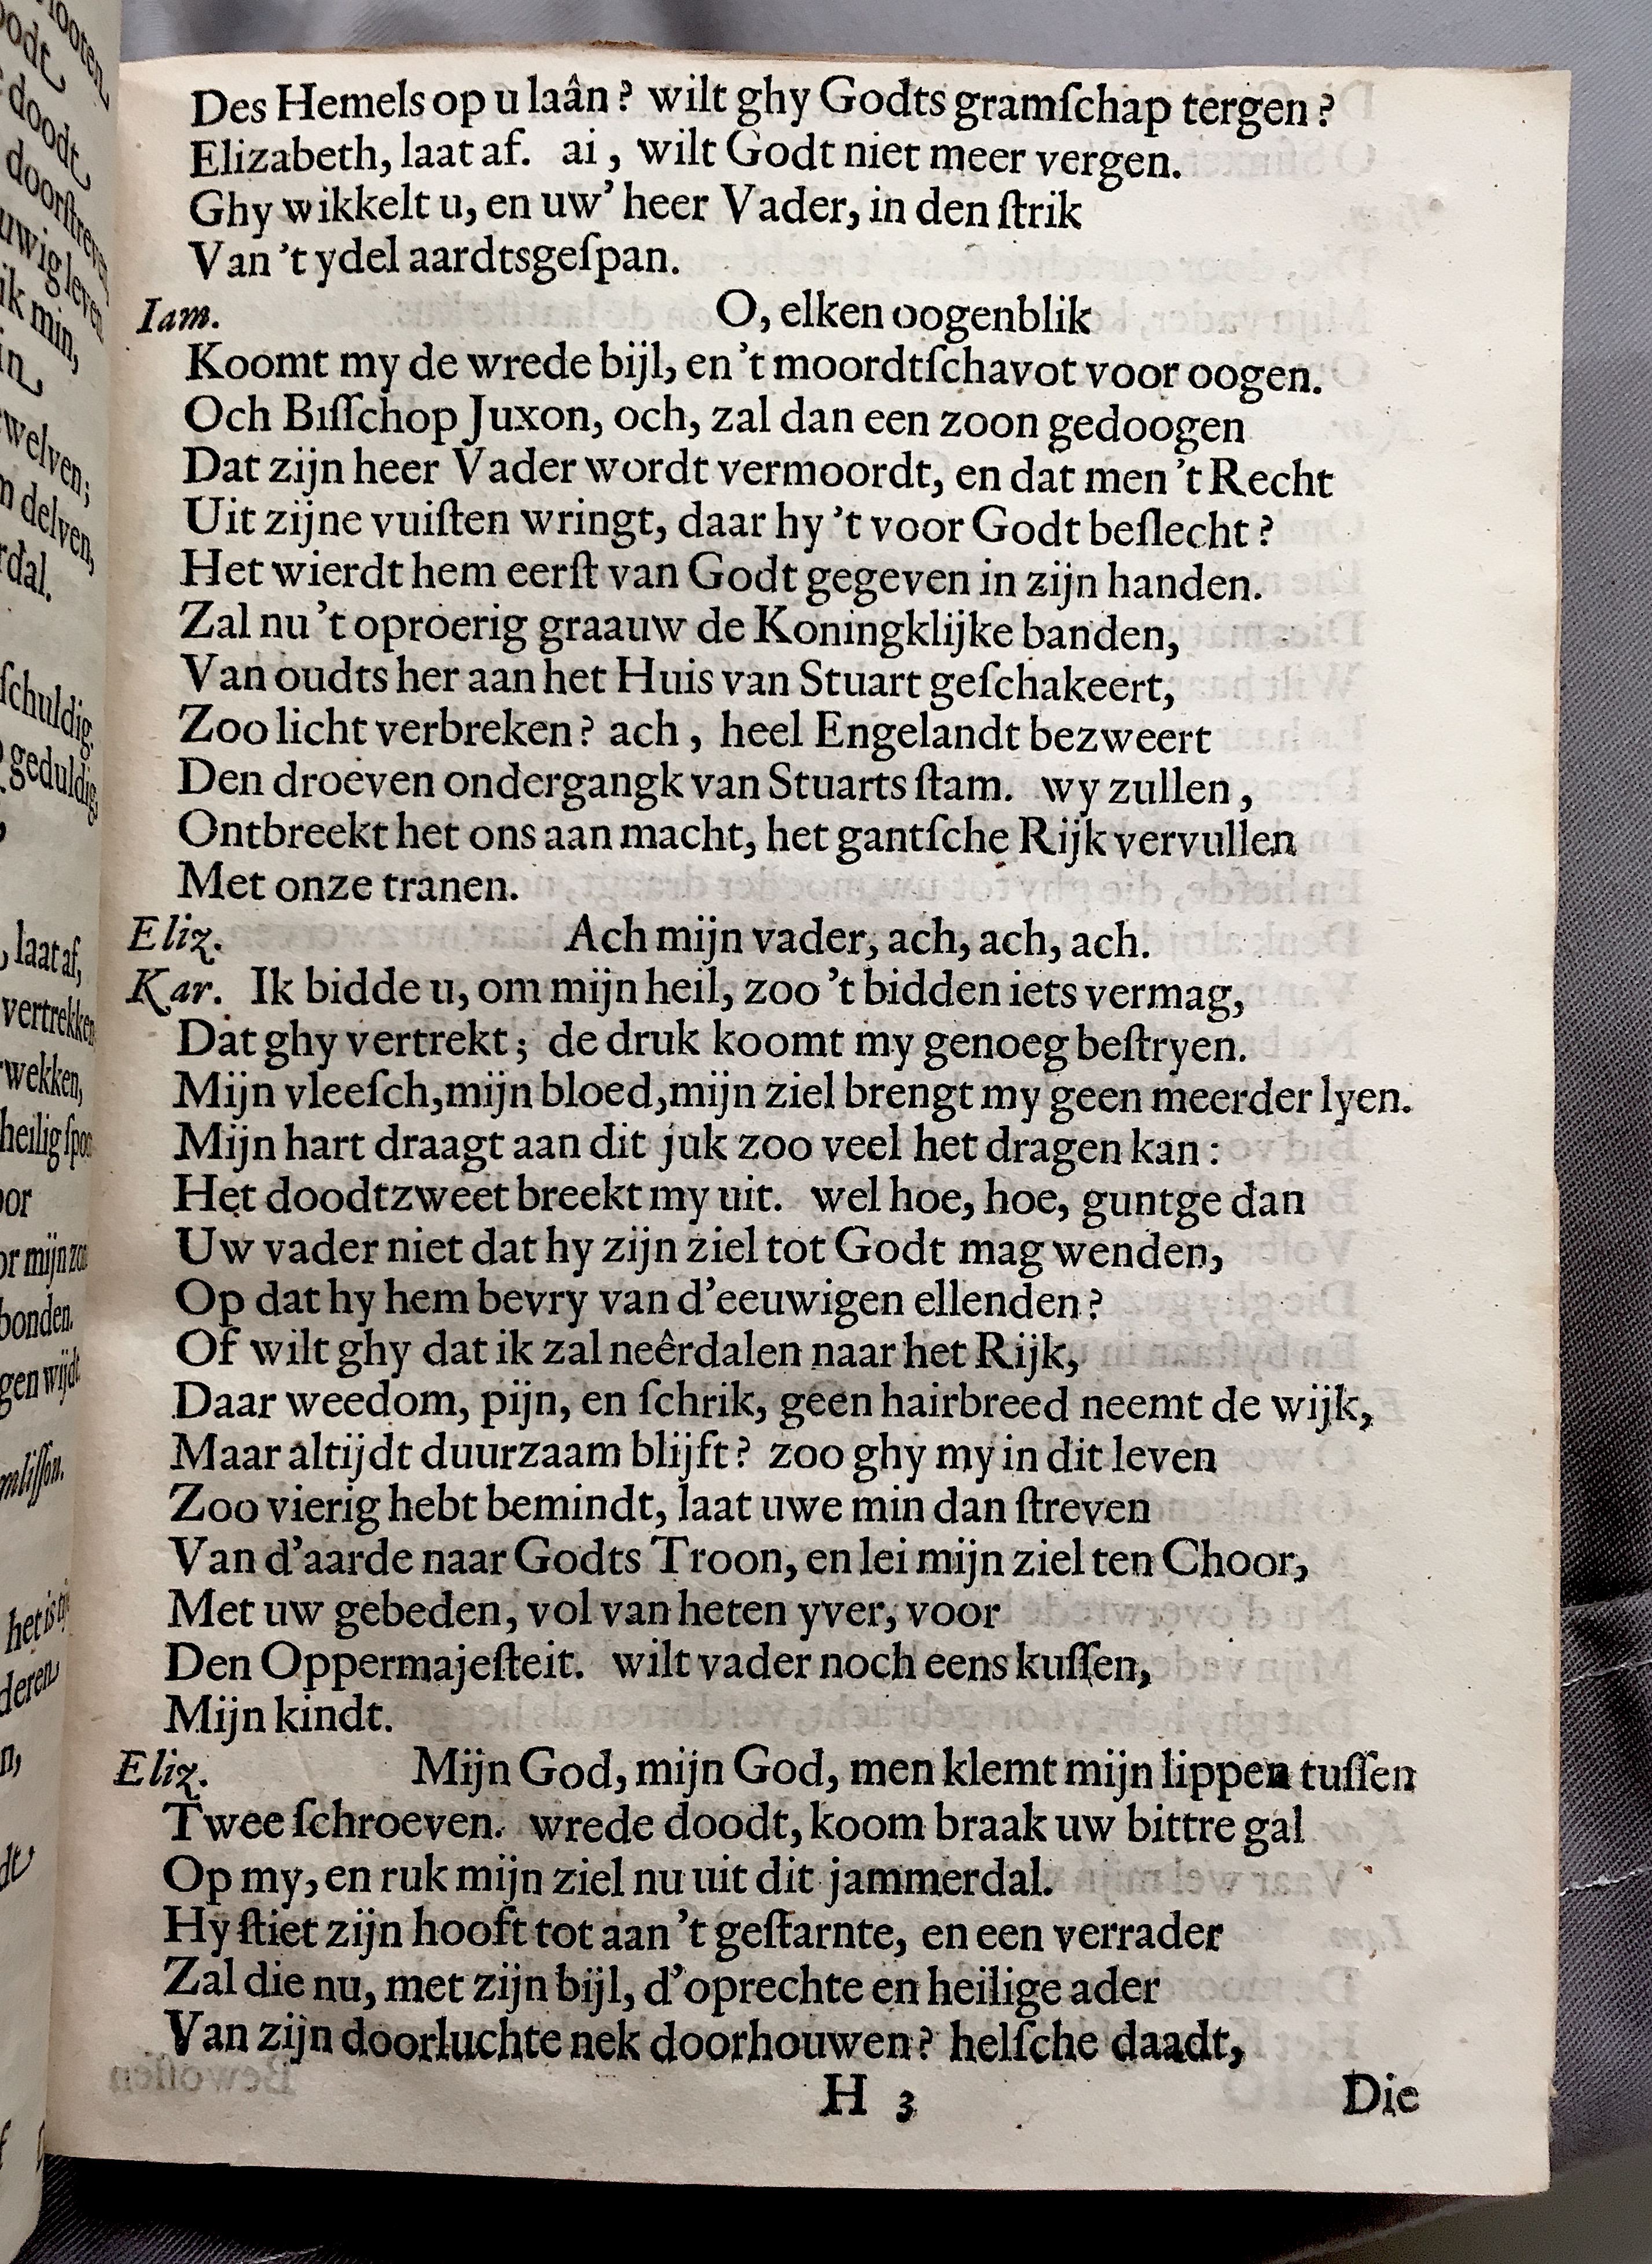 Des Hemels op u laân? wilt ghy Godts gramſchap tergen?
Elizabeth, laat af. ai, wilt Godt niet meer vergen.
Ghy wikkelt u, en uw' heer Vader, in den ſtrik
Van 't ydel aardtsgeſpan.
Iam. O, elken oogenblik
Koomt my de wrede bijl, en 't moordtſchavot voor oogen.
Och Biſſchop Juxon, och, zal dan een zoon gedoogen
Dat zijn heer Vader wordt vermoordt, en dat men 't Recht
Uit zijne vuiſten wringt, daar hy 't voor Godt beſlecht?
Het wierdt hem eerſt van Godt gegeven in zijn handen.
Zal nu 't oproerig graauw de Koningklijke banden,
Van oudts her aan het Huis van Stuart geſchakeert,
Zoo licht verbreken? ach, heel Engelandt bezweert
Den droeven ondergangk van Stuarts ſtam. wy zullen,
Ontbreekt het ons aan macht, het gantſche Rijk vervullen
Met onze tranen.
Eliz. Ach mijn vader, ach, ach, ach.
Kar. Ik bidde u, om mijn heil, zoo 't bidden iets vermag,
Dat ghy vertrekt; de druk koomt my genoeg beſtryen.
Mijn vleeſch, mijn bloed, mijn ziel brengt my geen meerder lyen.
Mijn hart draagt aan dit juk zoo veel het dragen kan:
Het doodtzweet breekt my uit. wel hoe, hoe, guntge dan
Uw vader niet dat hy zijn ziel tot Godt mag wenden,
Op dat hy hem bevry van d'eeuwigen ellenden?
Of wilt ghy dat ik zal neêrdalen naar het Rijk,
Daar weedom, pijn, en ſchrik, geen hairbreed neemt de wijk,
Maar altijdt duurzaam blijft? zoo ghy my in dit leven
Zoo vierig hebt bemindt, laat uwe min dan ſtreven
Van d'aarde naar Godts Troon, en lei mijn ziel ten Choor,
Met uw gebeden, vol van heten yver, voor
Den Oppermajeſteit. wilt vader noch eens kuſſen,
Mijn kindt.
Eliz. Mijn God, mijn God, men klemt mijn lippen tuſſen
Twee ſchroeven. wrede doodt, koom braak uw bittre gal
Op my, en ruk mijn ziel nu uit dit jammerdal.
Hy ſtiet zijn hooft tot aan 't geſtarnte, en een verrader
Zal die nu, met zijn bijl, d'oprechte en heilige ader
Van zijn doorluchte nek doorhouwen? helſche daadt,
H 3 Die